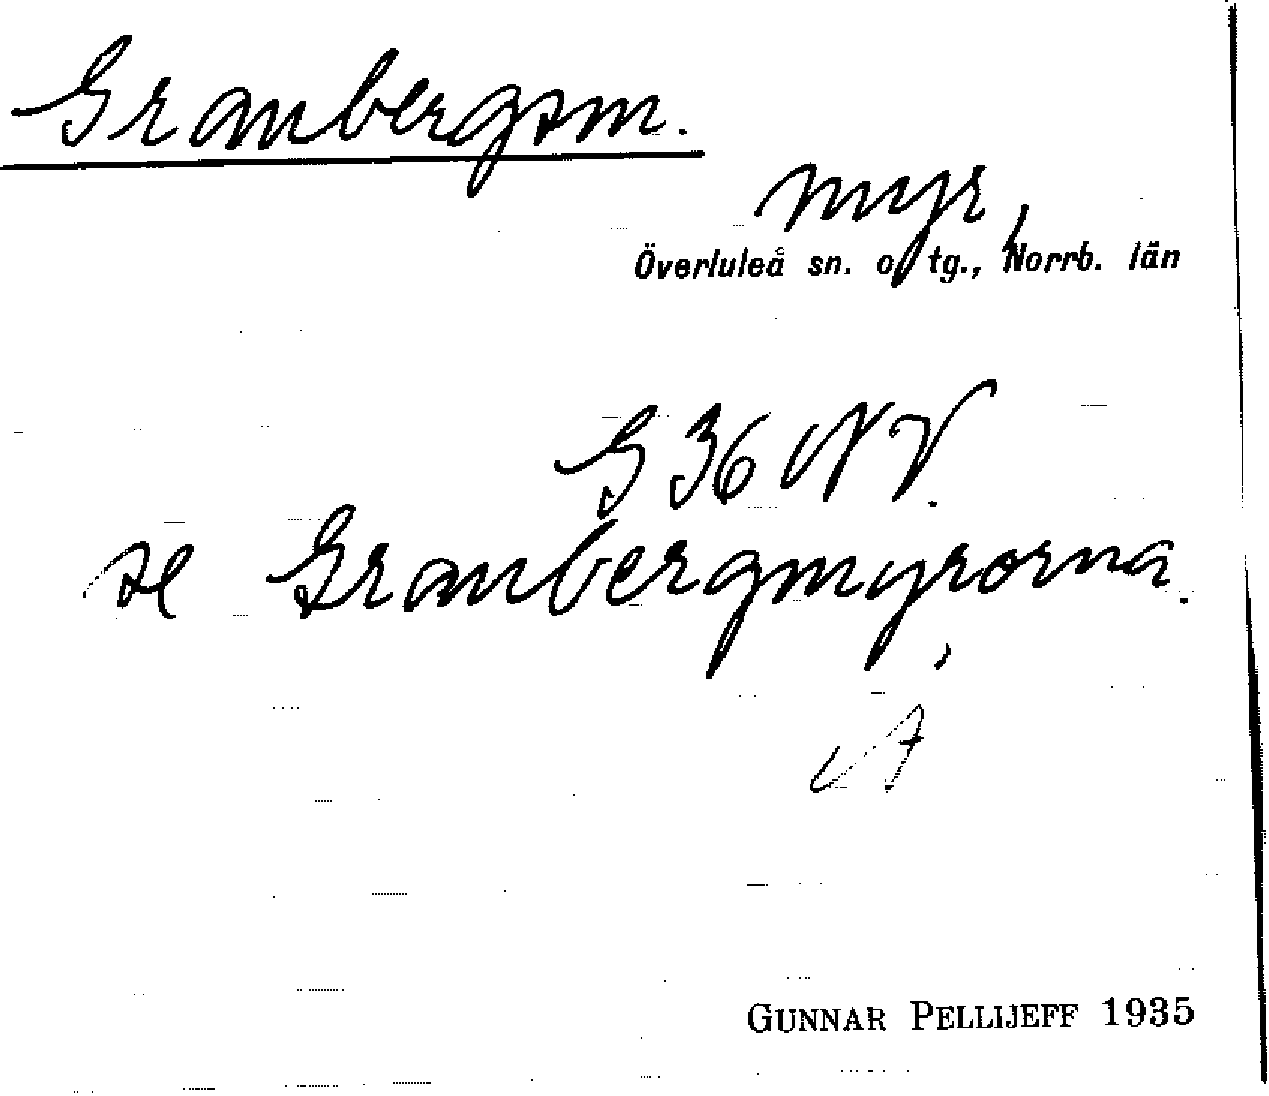 Granbergsm.
myr,
Överluleå sn. o. tg., Norrb. län
G 36 NV.
se Granbergmyrorna.
A
GUNNAR PELLIJEFF 1935